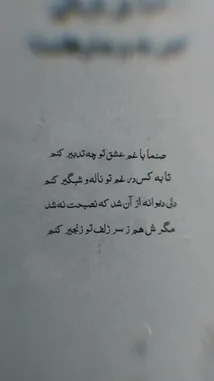 صنما با غم عشق تو چه تدبیر کنم
تا به کی در غم تو ناله و شبگیر کنم
دل دیوانه از آن شد که نصیحت نه شد
مگرش هم ز سر زلف تو زنجیر کنم